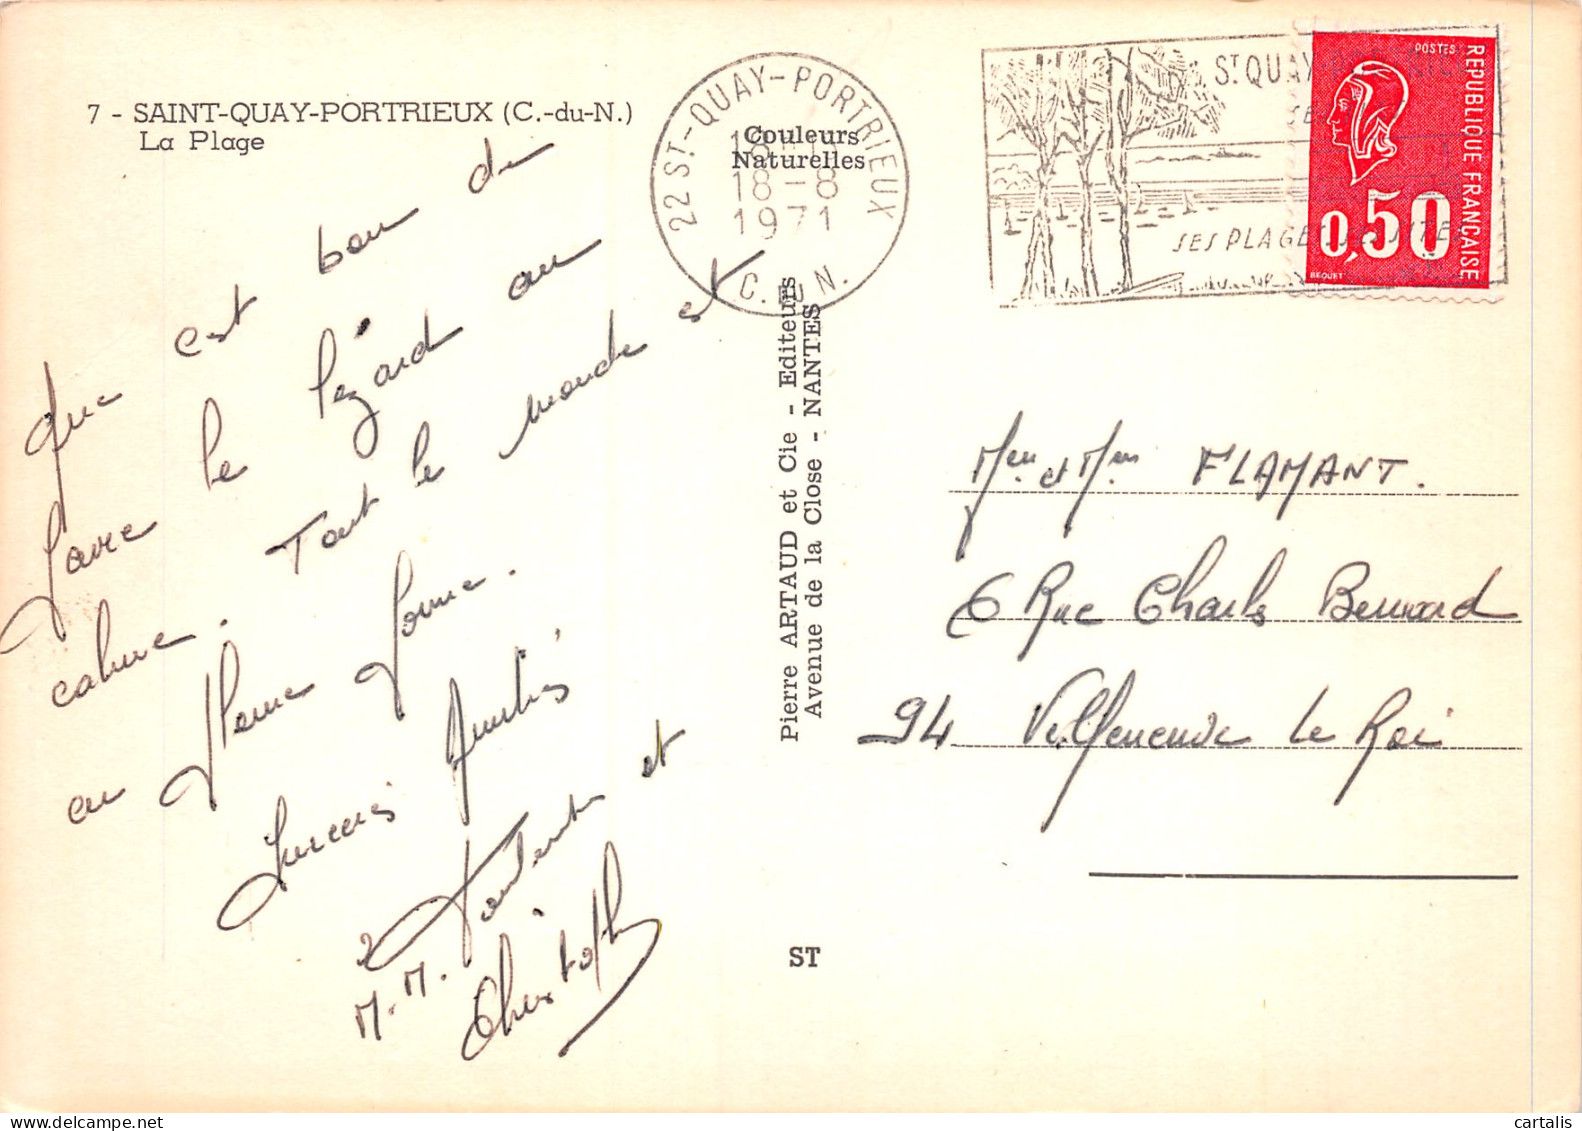 7 - SAINT-QUAY-PORTRIEUX (C.-du-N.)
La Plage
Que c'est bon de
faire le lézard au
calme. Tout le monde est
en pleine forme.
Amitiés
M.M.
et
Christophe
22 ST-QUAY-PORTRIEUX
18-8
1971
C. DU N.
Couleurs
Naturelles
Pierre ARTAUD et Cie - Editeurs
Avenue de la Close - NANTES
ST
ST QUAY
SES PLAGES
POSTES
REPUBLIQUE FRANÇAISE
0,50
BEQUET
Mr et Mme FLAMANT.
6 Rue Charles Bernard
94 Villeneuve Le Roi
cartalis